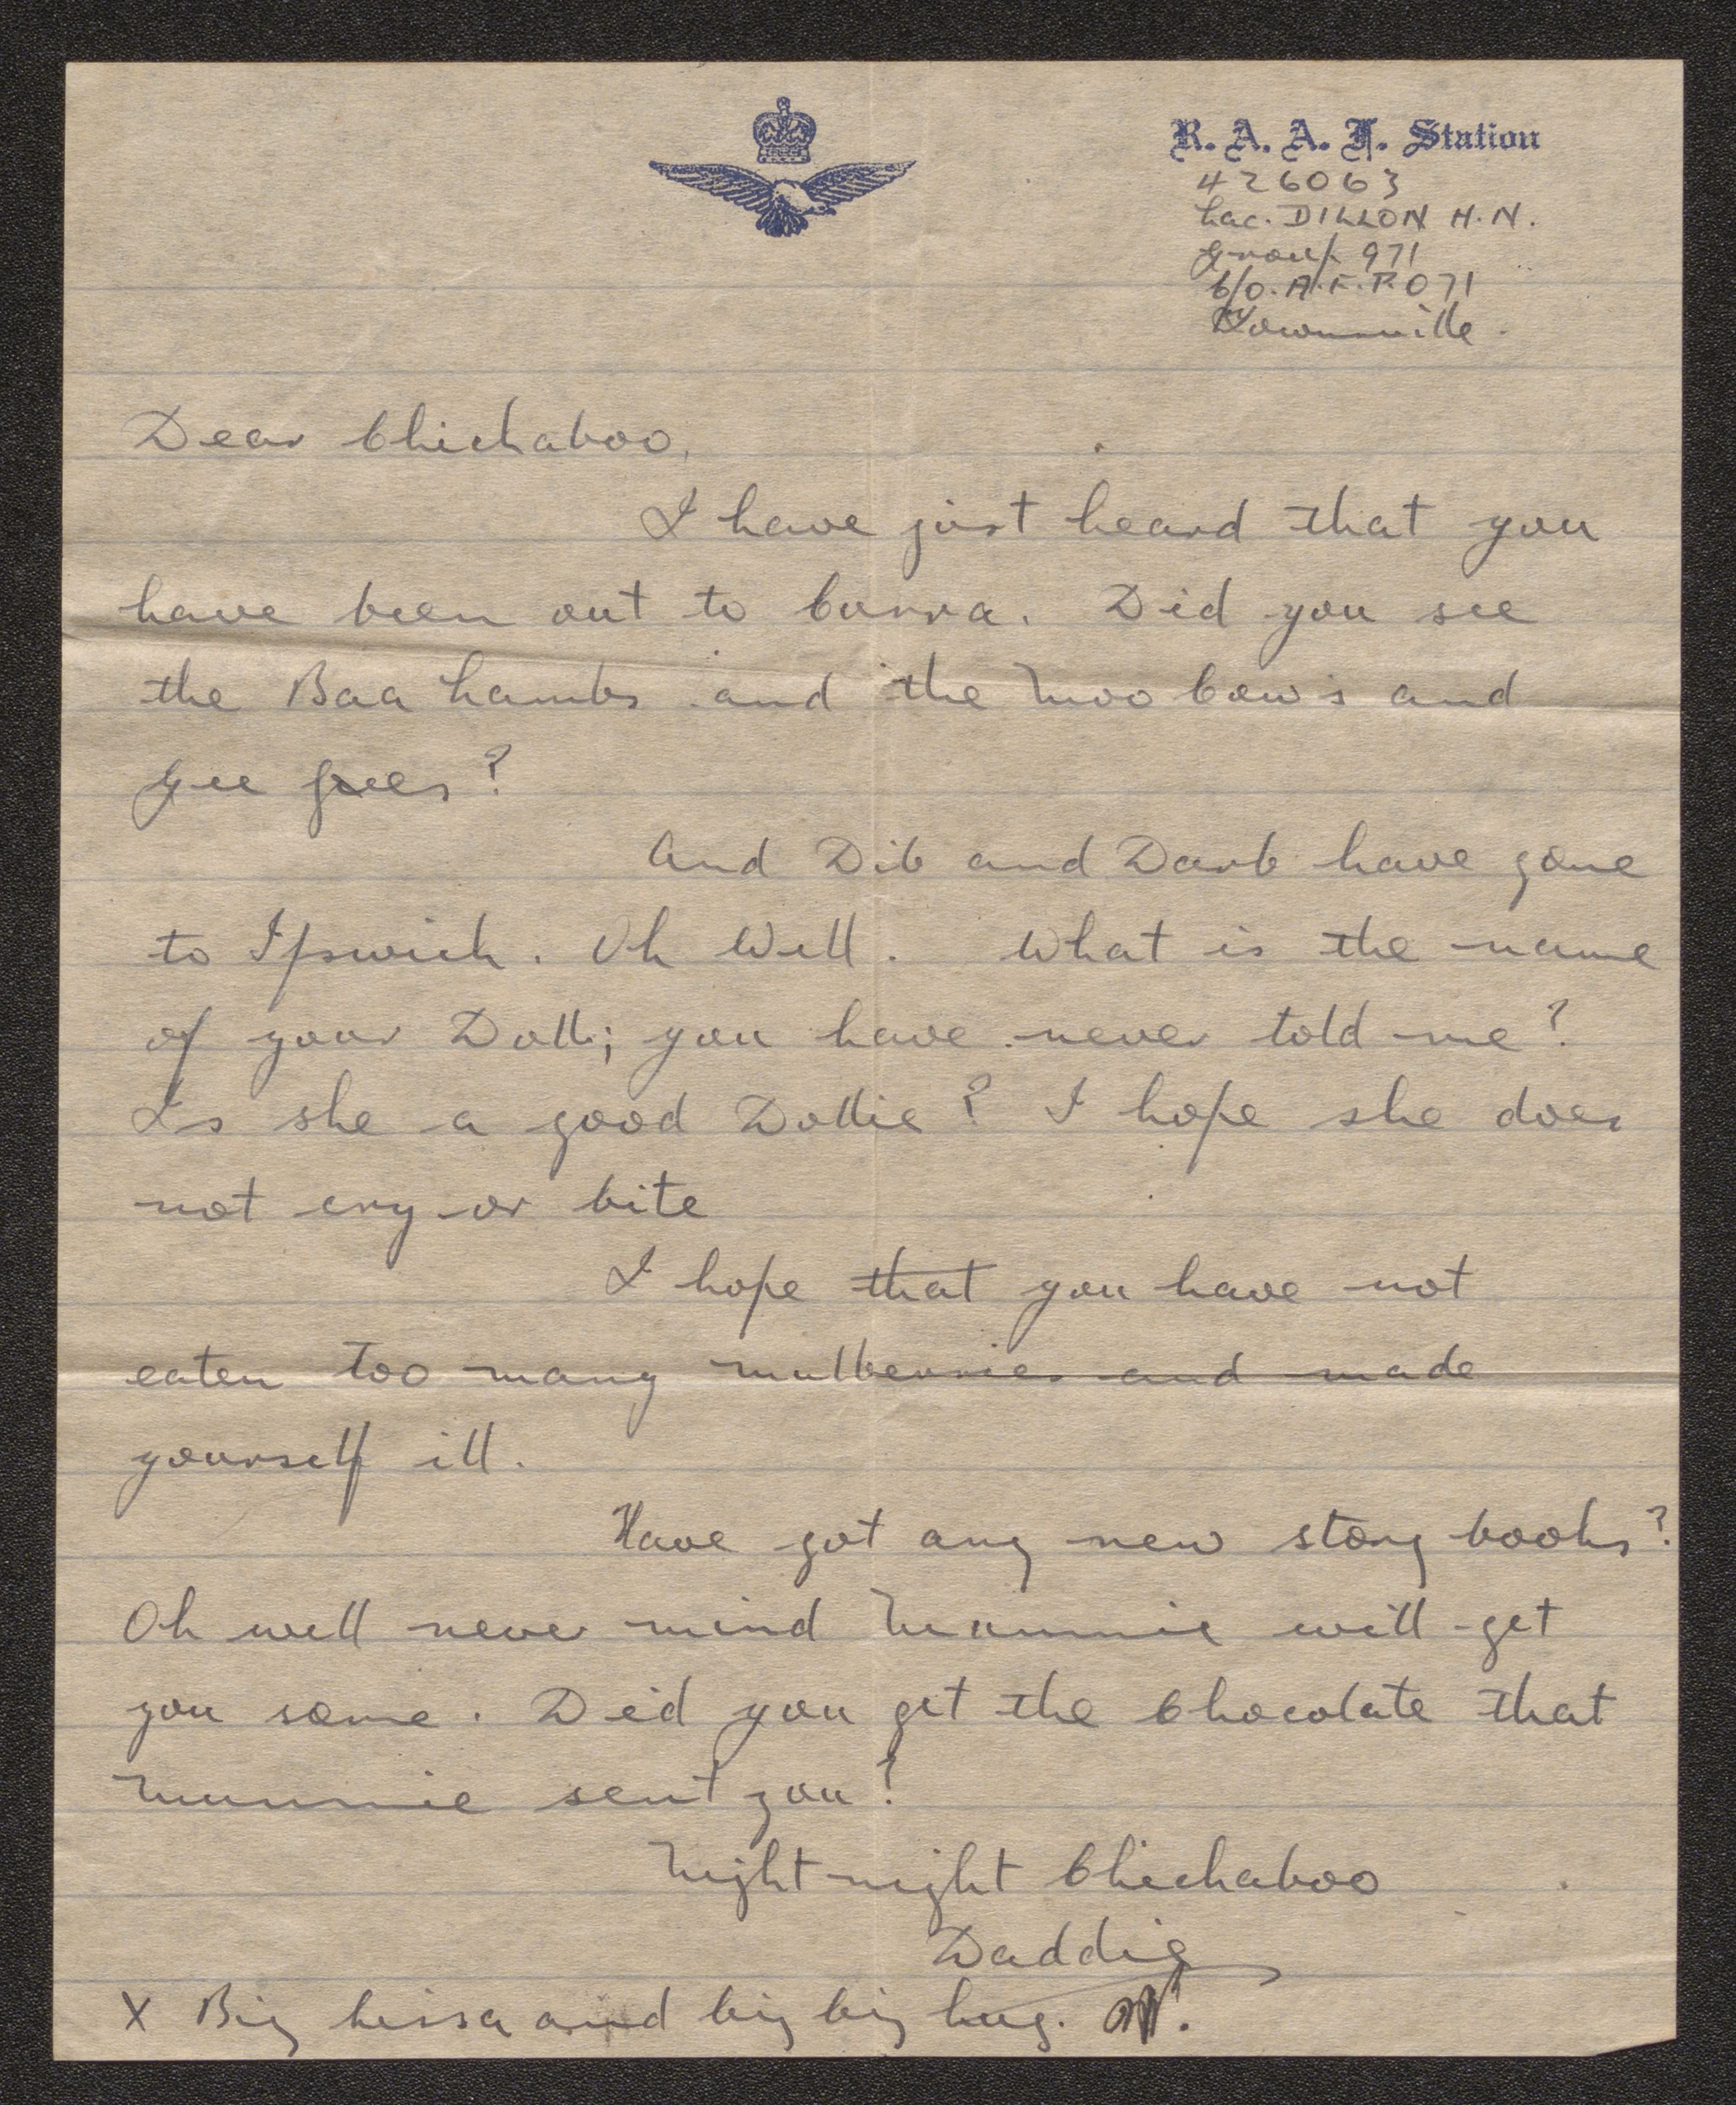 R. A. A. F. Station
426063
Lac. DILLON H. N.
Group 971
C/O. A.F.P.O 71
Townsville.
Dear Chickaboo,
I have just heard that you
have been out to Curra. Did you see
the Baa Lambs and the Moo Cow's and
Gee Gees?
And Dib and Darb have gone
to Ipswich. Oh Well. What is the name
of your Doll; you have never told me?
Is she a good Dollie? I hope she does
not cry or bite
I hope that you have not
eaten too many mulberries and made
yourself ill.
Have got any new story books?
Oh well never mind Mummie will get
you some. Did you get the Chocolate that
Mummie sent you?
Night night Chickaboo
Daddie
X Big kissa and big big hug.